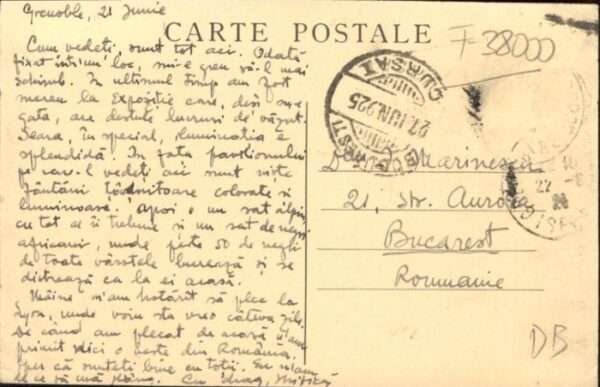 Grenoble, 21 Iunie
CARTE POSTALE
F-38000
Cum vedeți, sunt tot aci. Odată
fixat într'un loc, mi-e greu să-l mai
schimb. In ultimul timp am fost
mereu la Expoziție care, deși nu e
gata, are destule lucruri de văzut.
Seara, în special, iluminatia e
splendidă. In fața pavilionului
pe care-l vedeți aci sunt niște
fântâni țâșnitoare colorate și
luminoase. Apoi o un sat alpin
cu tot ce-i trebuie și un sat de negri
africani, unde peste 50 de negri
de toate vârstele lucrează și se
distrează ca la ei acasă.
Mâine m'am hotărît să plec la
Lyon, unde voiu sta vreo câteva zile.
De când am plecat de acasă n'am
primit nici o veste din România.
Sper că sunteți bine cu toții. Eu n'am
de ce să mă plâng. Cu drag,
BUCUREȘTI
27. IUN. 925
CURSA I
D Marinescu
21, Str. Aurora
Bucarest
Roumanie
22
DB